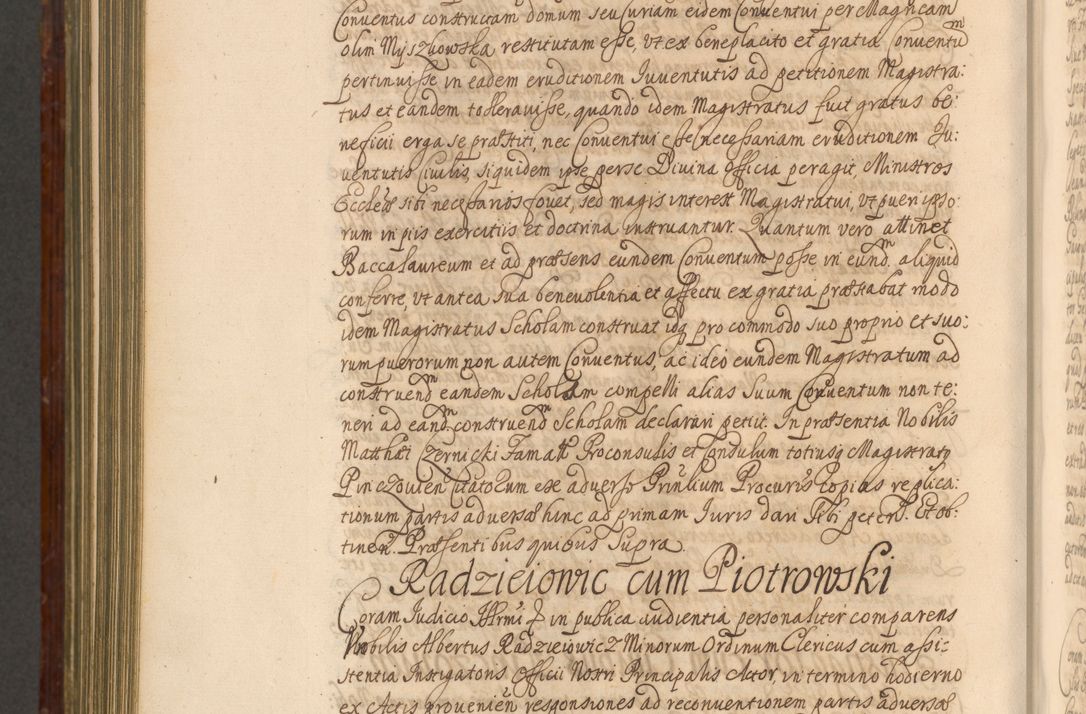 Conventus constructam domum seu Curiam eidem Conventui per Magcam
olim Myszkowska restitutam esse, ut ex beneplacito et gratia Conventū
pertinuisse in eadem eruditionem Iuventutis ad petitionem Magistra:
tus et eandem tolleravisse, quando idem Magistratus fuit gratus be:
neficii erga se præstiti, nec Conventui esse necessariam eruditionem Ju:
ventutis Civilis, siquidem ipse per se Divina officia peragit, Ministros
Ecclæ sibi necessarios fovet, sed magis interest Magistratui, ut pueri ipso:
rum in piis exercitiis et doctrina instruantur. Quantum vero attinet
Baccalaureum et ad præsens eundem Conventum posse in eundm aliquid
conferre, ut antea sua benevolentia et affectu ex gratia præstabat modo
idem Magistratus Scholam construat idq pro commodo suo proprio et suo:
rum puerorum non autem Conventus, ac ideo eundem Magistratum ad
construendm eandem Scholam compelli alias Suum Conventum non te:
neri ad eandm construendm Scholam declarari petiit. In præsentia Nobilis
Matthæi Czernicki Famatt Proconsulis et Consulum totiusq Magistratq
Pinczovien Citatorum ex adverso Prinlium Procuris copias replica:
tionum partis adversæ hinc ad primam Iuris dari sibi peten. Et ob:
tinen. Præsentibus quibus Supra
Radzieiowic cum Piotrowski
Coram Iudicio Illrmi & in publica audientia personaliter comparens
Nobilis Albertus Radzieiowicz Minorum Ordinum Clericus cum assi:
stentia Instigatoris Officii Nostri Principalis Actor, in termino hodierno
ex Actis provenien responsiones ad reconventionem partis adversæ